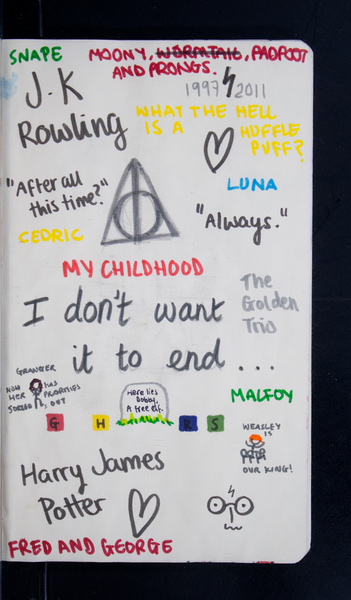 SNAPE
MOONY, WORMTAIL, PADFOOT
AND PRONGS.
J.K
Rowling
1997 2011
WHAT THE HELL
IS A HUFFLE
PUFF?
"After all
this time?"
LUNA
"Always."
CEDRIC
MY CHILDHOOD
The
Golden
Trio
I don't want
it to end...
GRANGER
NOW HAS
HER PRIORITIES
SORTED OUT
Here lies
Dobby,
A free elf.
MALFOY
G H R S
WEASLEY
IS
OUR KING!
Harry James
Potter
FRED AND GEORGE